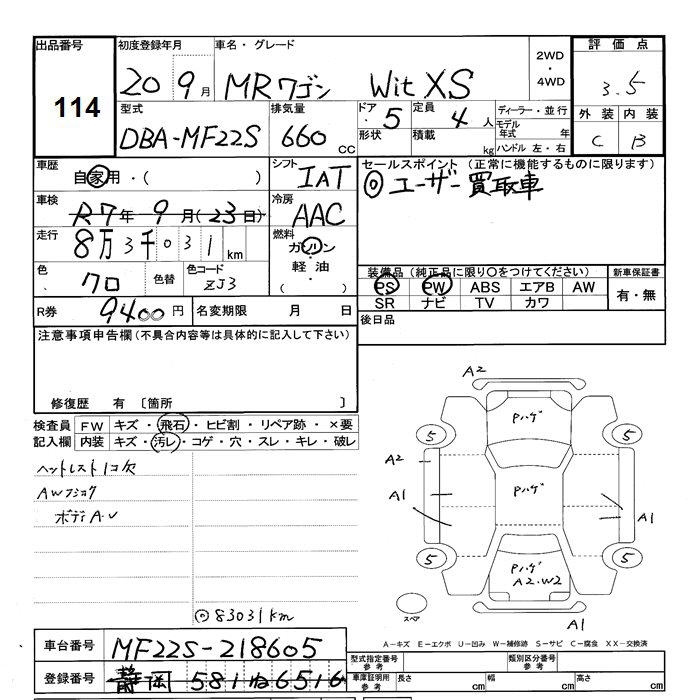 出品番号 初度登録年月 車名・グレード 2WD・4WD 評価点
114 20 9月 MRワゴン Wit XS 3.5
型式 排気量 ドア・形状 5 定員 4人 積載 kg ディーラー・並行 モデル年式 年 ハンドル 左・右 外装 内装
DBA-MF22S 660 CC C B
車歴 自家用・( ) シフト IAT セールスポイント (正常に機能するものに限ります)
◎ユーザー買取車
車検 R7年9月(23日) 冷房 AAC
走行 8万3千031km 燃料 ガソリン・軽油・( )
色 クロ 色替 色コード ZJ3
装備品 (純正品に限り○をつけてください) 新車保証書
PS PW ABS エアB AW 有・無
SR ナビ TV カワ
R券 9400円 名変期限 月 日 後日品
注意事項申告欄 (不具合内容等は具体的に記入して下さい)
修復歴 有 〔箇所 〕
検査員記入欄 FW キズ・飛石・ヒビ割・リペア跡・×要
内装 キズ・汚レ・コゲ・穴・スレ・キレ・破レ
ヘットレスト1コ欠
AWフショク
ボディA・U
◎83031km
A2
Pハゲ
5 5
A2
A1 Pハゲ
A1
5 5
Pハゲ
A2.W2
スペア
A1
A-キズ E-エクボ U-凹み W-補修跡 S-サビ C-腐食 XX-交換済
車台番号 MF22S-218605 型式指定番号 参考 類別区分番号 参考
登録番号 静岡 581ね6516 車庫証明用 参考 長さ cm 幅 cm 高さ cm